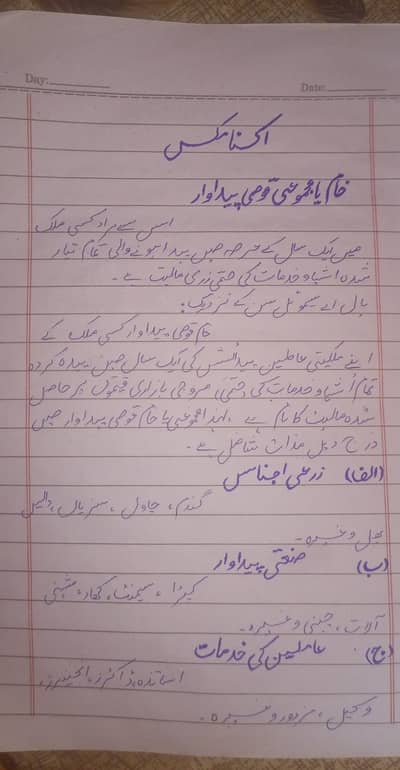 Day:
Date:
اکنامکس
خام یا مجموعی قومی پیداوار
اس سے مراد کسی ملک
میں ایک سال کے عرصہ میں پیدا ہونے والی تمام تیار
شدہ اشیا و خدمات کی حتمی زری مالیت ہے۔
پال اے سیموئل سن کے نزدیک:
خام قومی پیداوار کسی ملک کے
اپنے ملکیتی عاملین پیدائش کی ایک سال میں پیدا کردہ
تمام اشیا و خدمات کی حتمی مروجی بازاری قیمتوں پر حاصل
شدہ مالیت کا نام ہے۔ لہذا مجموعی یا خام قومی پیداوار میں
درج ذیل مدات شامل ہے۔
(الف) زرعی اجناس
گندم، چاول، سبزیاں، دالیں
پھل وغیرہ۔
(ب) صنعتی پیداوار
کپڑا، سیمنٹ، کھاد، مشینی
آلات، چینی وغیرہ۔
(ج) عاملین کی خدمات
اساتذہ، ڈاکٹرز، انجینئرز،
وکیل، مزدور وغیرہ۔